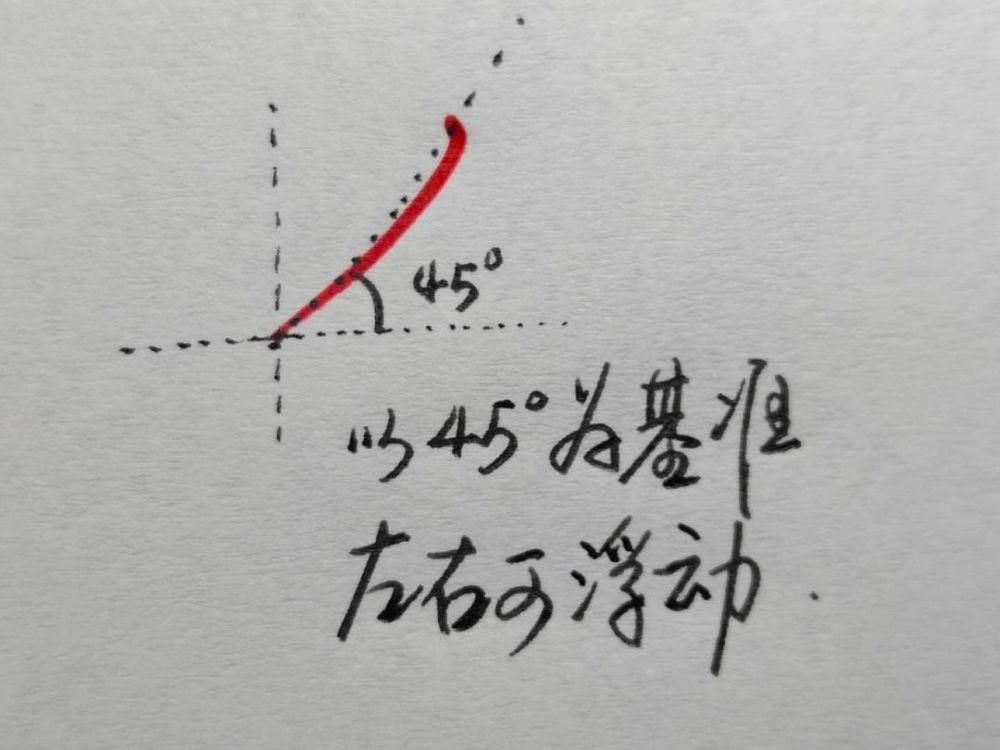 45°
以45°为基准
左右可浮动.